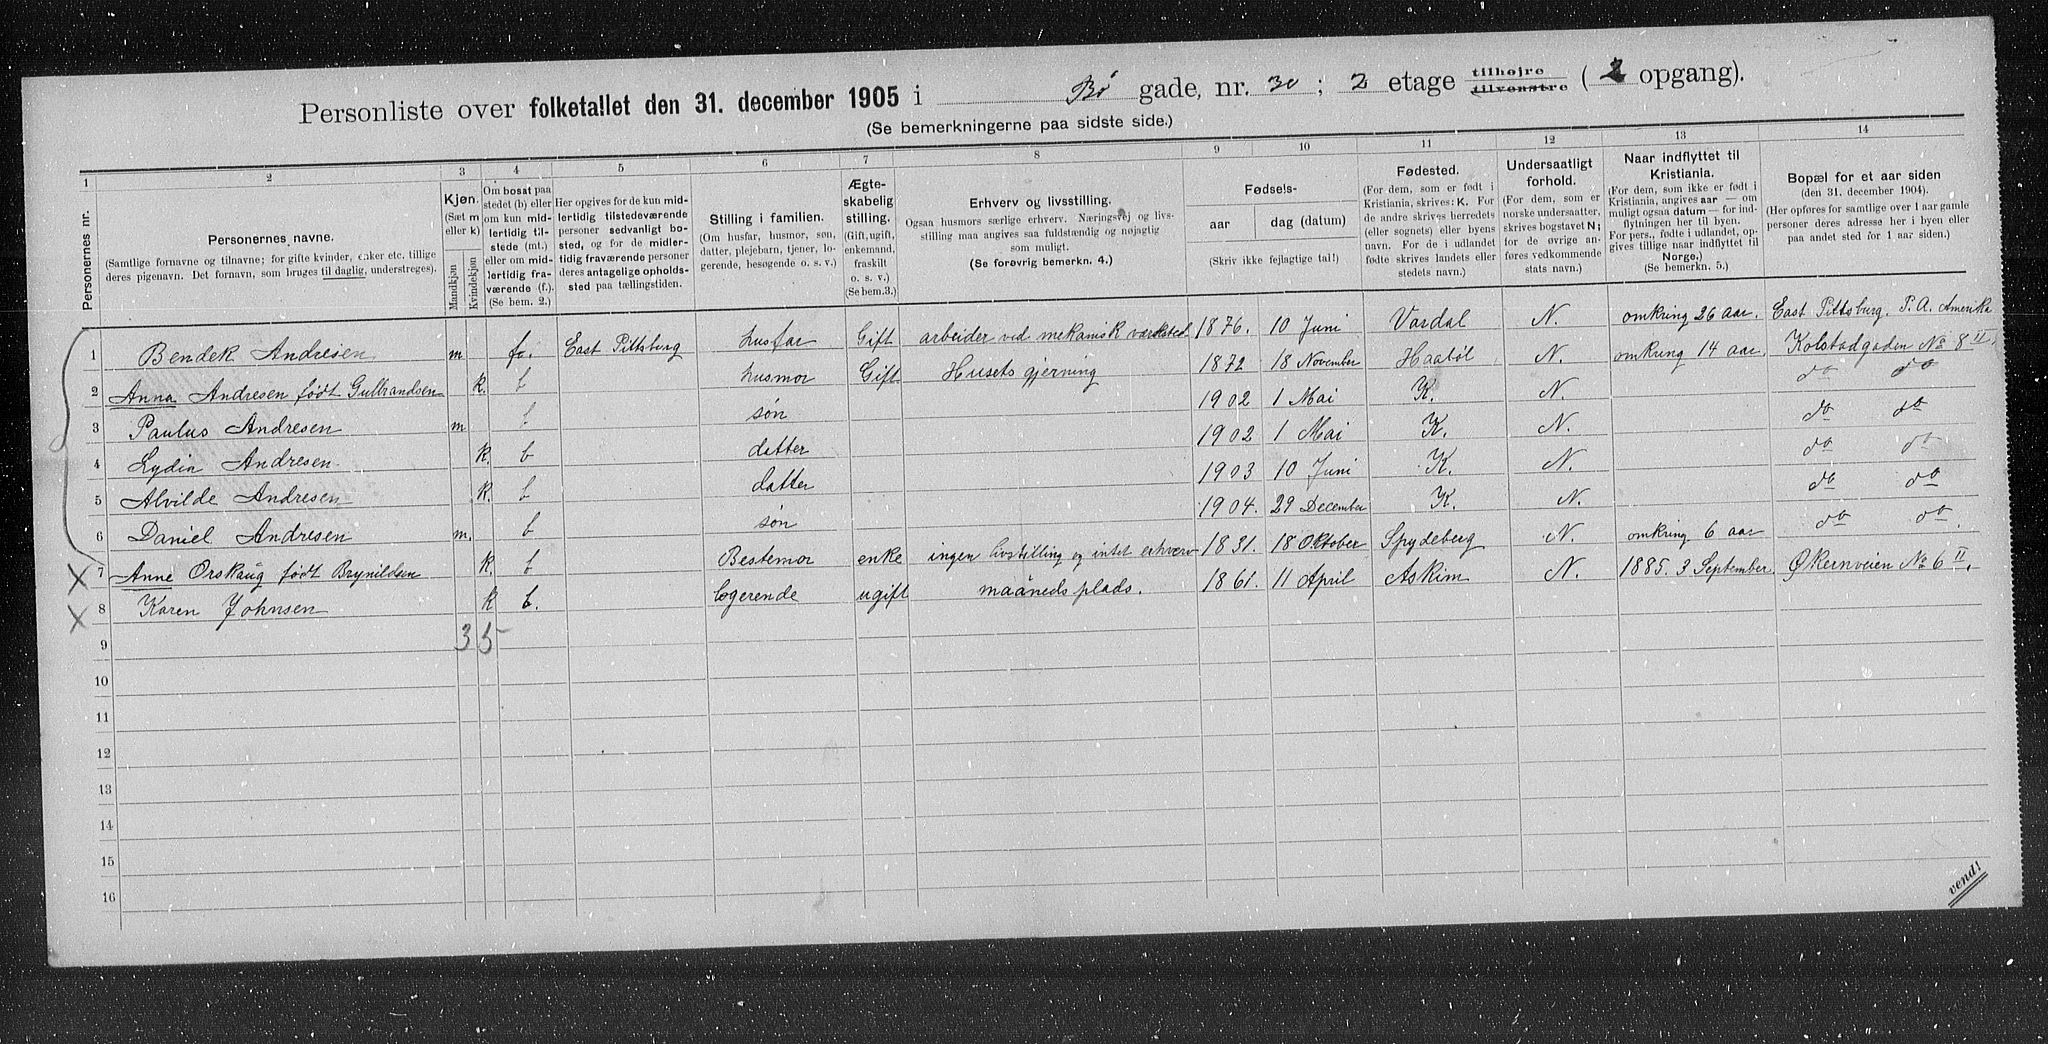 Personliste over folketallet den 31. december 1905 i Bø gade, nr. 30; 2 etage tilhøjre tilvenstre (2 opgang).
(Se bemerkningerne paa sidste side.)
1 2 3 4 5 6 7 8 9 10 11 12 13 14
Personernes nr.
Personernes navne.
(Samtlige fornavne og tilnavne; for gifte kvinder, enker etc. tillige
deres pigenavn. Det fornavn, som bruges til daglig, understreges).
Kjøn.
(Sæt m
eller k)
Mandkjøn
Kvindekjøn
Om bosat paa
stedet (b) eller
om kun mid-
lertidig til-
stede (mt.)
eller om mid-
lertidig fra-
værende (f.).
(Se bem. 2.)
Her opgives for de kun mid-
lertidig tilstedeværende
personer sedvanligt bo-
sted, og for de midler-
tidig fraværende personer
deres antagelige opholds-
sted paa tællingstiden.
Stilling i familien.
(Om husfar, husmor, søn,
datter, plejebarn, tjener, lo-
gerende, besøgende o. s. v.)
Ægte-
skabelig
stilling.
(Gift, ugift,
enkemand,
fraskilt
o. s. v.)
(Se bem.3.)
Erhverv og livsstilling.
Ogsaa husmors særlige erhverv. Næringsvej og livs-
stilling maa angives saa fuldstændig og nøjagtig
som muligt.
(Se forøvrig bemerkn. 4.)
Fødsels-
aar dag (datum)
(Skriv ikke fejlagtige tal!)
Fødested.
(For dem, som er født i
Kristiania, skrives: K. For
de andre skrives herredets
(eller sognets) eller byens
navn. For de i udlandet
fødte skrives landets eller
stedets navn.)
Undersaatligt
forhold.
(For dem, som er
norske undersaatter,
skrives bogstavet N;
for de øvrige an-
føres vedkommende
stats navn.)
Naar indflyttet til
Kristiania.
(For dem, som ikke er født i
Kristiania, angives aar — om
muligt ogsaa datum — for ind-
flytningen her til byen.
For pers., fødte i udlandet, op-
gives tillige naar indflyttet til
Norge.)
(Se bemerkn. 5.)
Bopæl for et aar siden
(den 31. december 1904).
(Her opføres for samtlige over 1 aar gamle
personer deres adresse her i byen eller
paa andet sted for 1 aar siden.)
1 Bendek Andresen m f. East Pittsburg husfar Gift arbeider ved mekanisk værksted 1876. 10 Juni Vardal N. omkring 26 aar. East Pittsburg. P. A. Amerika
2 Anna Andresen født Gulbrandsen k. b husmor Gift Husets gjerning 1872 18 November Haabøl N. omkring 14 aar. Kolstadgaden No 8 II.
3 Paulus Andresen m b søn 1902 1 Mai K. N. do do
4 Lydia Andresen. k. b datter 1902 1 Mai K. N. do do
5 Alvilde Andresen k. b datter 1903 10 Juni K. N. do do
6 Daniel Andresen m. b søn 1904. 29 December K N. do do
7 Anne Orskaug født Brynildsen k. b Bestemor enke ingen livstilling og intet erhverv 1831. 18 Oktober Spydeberg N. omkring 6 aar do do.
8 Karen Johnsen k b. logerende ugift maaneds plads. 1861. 11 April Askim N. 1885. 3 September. Økernveien No 6 II.
9 3 5
10
11
12
13
14
15
16
vend!